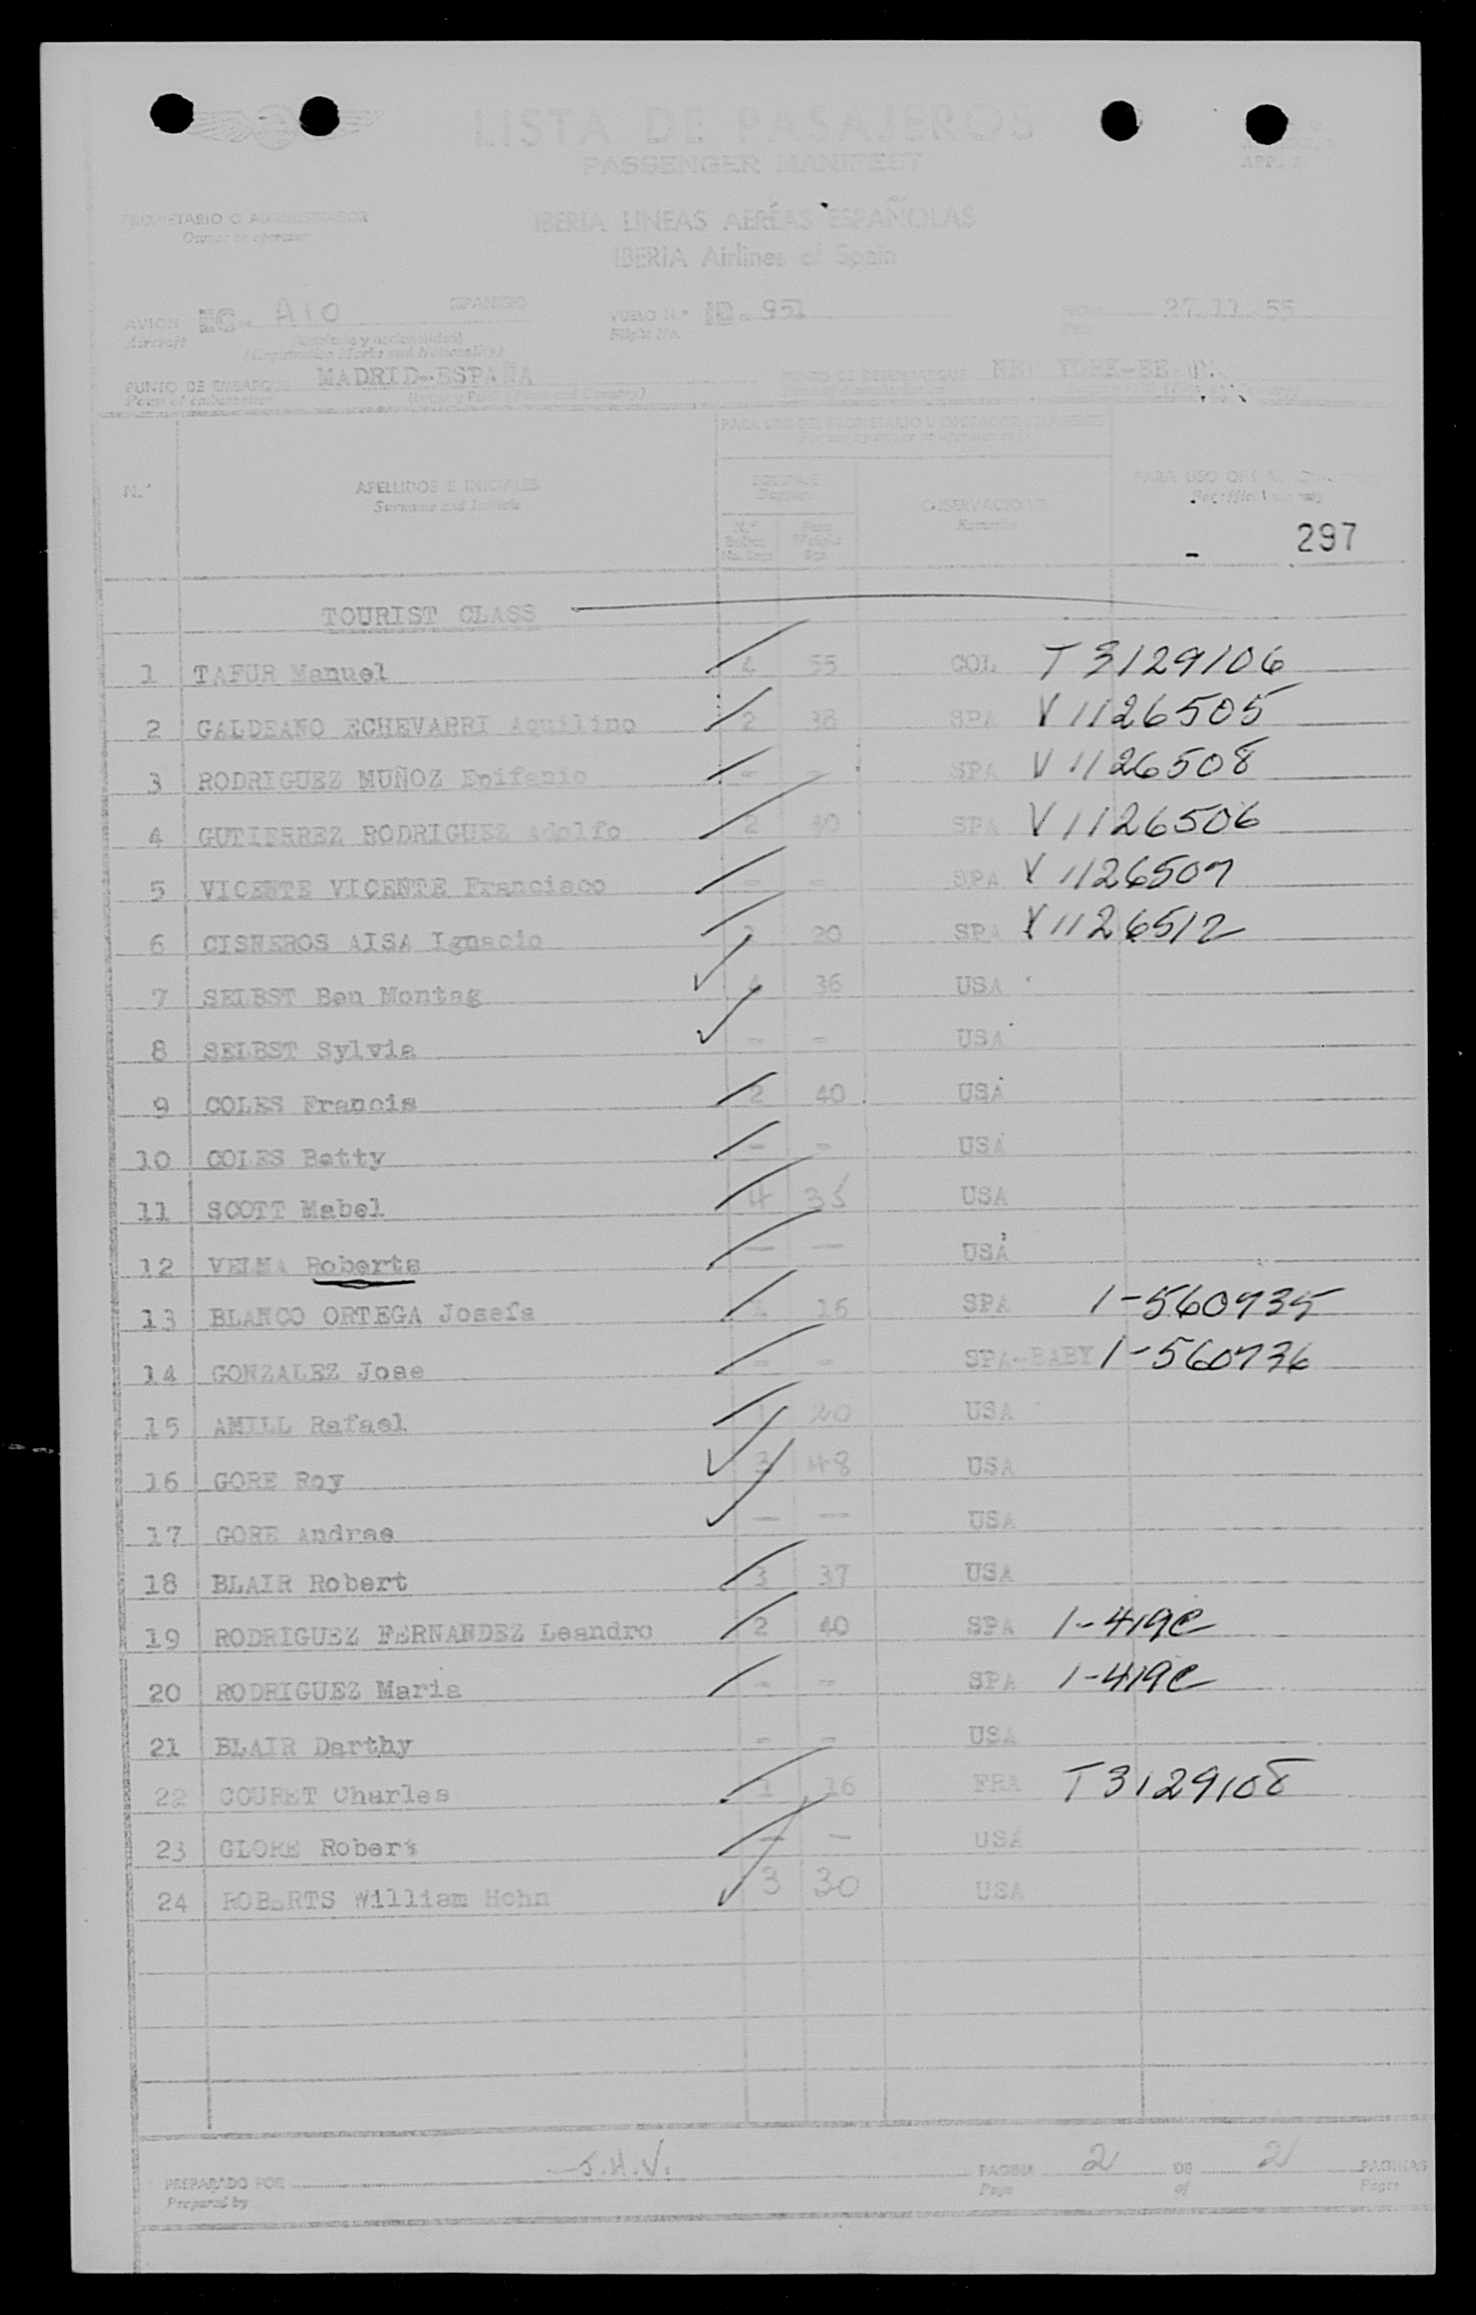 LISTA DE PASAJEROS
PASSENGER MANIFEST
PROPIETARIO O ADMINISTRADOR
Owner or operator
IBERIA LINEAS AEREAS ESPAÑOLAS
IBERIA Airlines of Spain
AVION EC- AIO
Aircraft
VUELO N.º IB- 951
Flight No.
27.11.55
(Registration Marks and Nationality)
PUNTO DE EMBARQUE MADRID-ESPAÑA
Point of embarkation
NEW YORK-
N.º APELLIDOS E INICIALES
Surname and Initials
OBSERVACIONES
Remarks
PARA USO OFICIAL
297
TOURIST CLASS
1 TAFUR Manuel 4 55 COL T 3129106
2 GALDEANO ECHEVARRI Aquilino 2 38 SPA V 1126505
3 RODRIGUEZ MUÑOZ Epifanio - - SPA V 1126508
4 GUTIERREZ RODRIGUEZ Adolfo 2 40 SPA V 1126506
5 VICENTE VICENTE Francisco - - SPA V 1126507
6 CISNEROS AISA Ignacio 20 SPA V 1126512
7 SELBST Ben Montag 36 USA
8 SELBST Sylvia - - USA
9 COLES Francis 2 40 USA
10 COLES Betty - - USA
11 SCOTT Mabel 4 35 USA
12 VELMA Roberts — — USA
13 BLANCO ORTEGA Josefa 16 SPA 1-560735
14 GONZALEZ Jose - - SPA-BABY 1-560736
15 AMILL Rafael 1 20 USA
16 GORE Roy 3 48 USA
17 GORE Andrae — — USA
18 BLAIR Robert 3 37 USA
19 RODRIGUEZ FERNANDEZ Leandro 2 40 SPA 1-419C
20 RODRIGUEZ Maria - - SPA 1-419C
21 BLAIR Darthy - - USA
22 COURET Charles 1 16 FRA T 3129108
23 GLORE Robert — — USA
24 ROBERTS William Hohn 3 30 USA
PREPARADO POR J.H.V. PAGINA 2 DE 2 PAGINAS
Prepared by Page of Pages